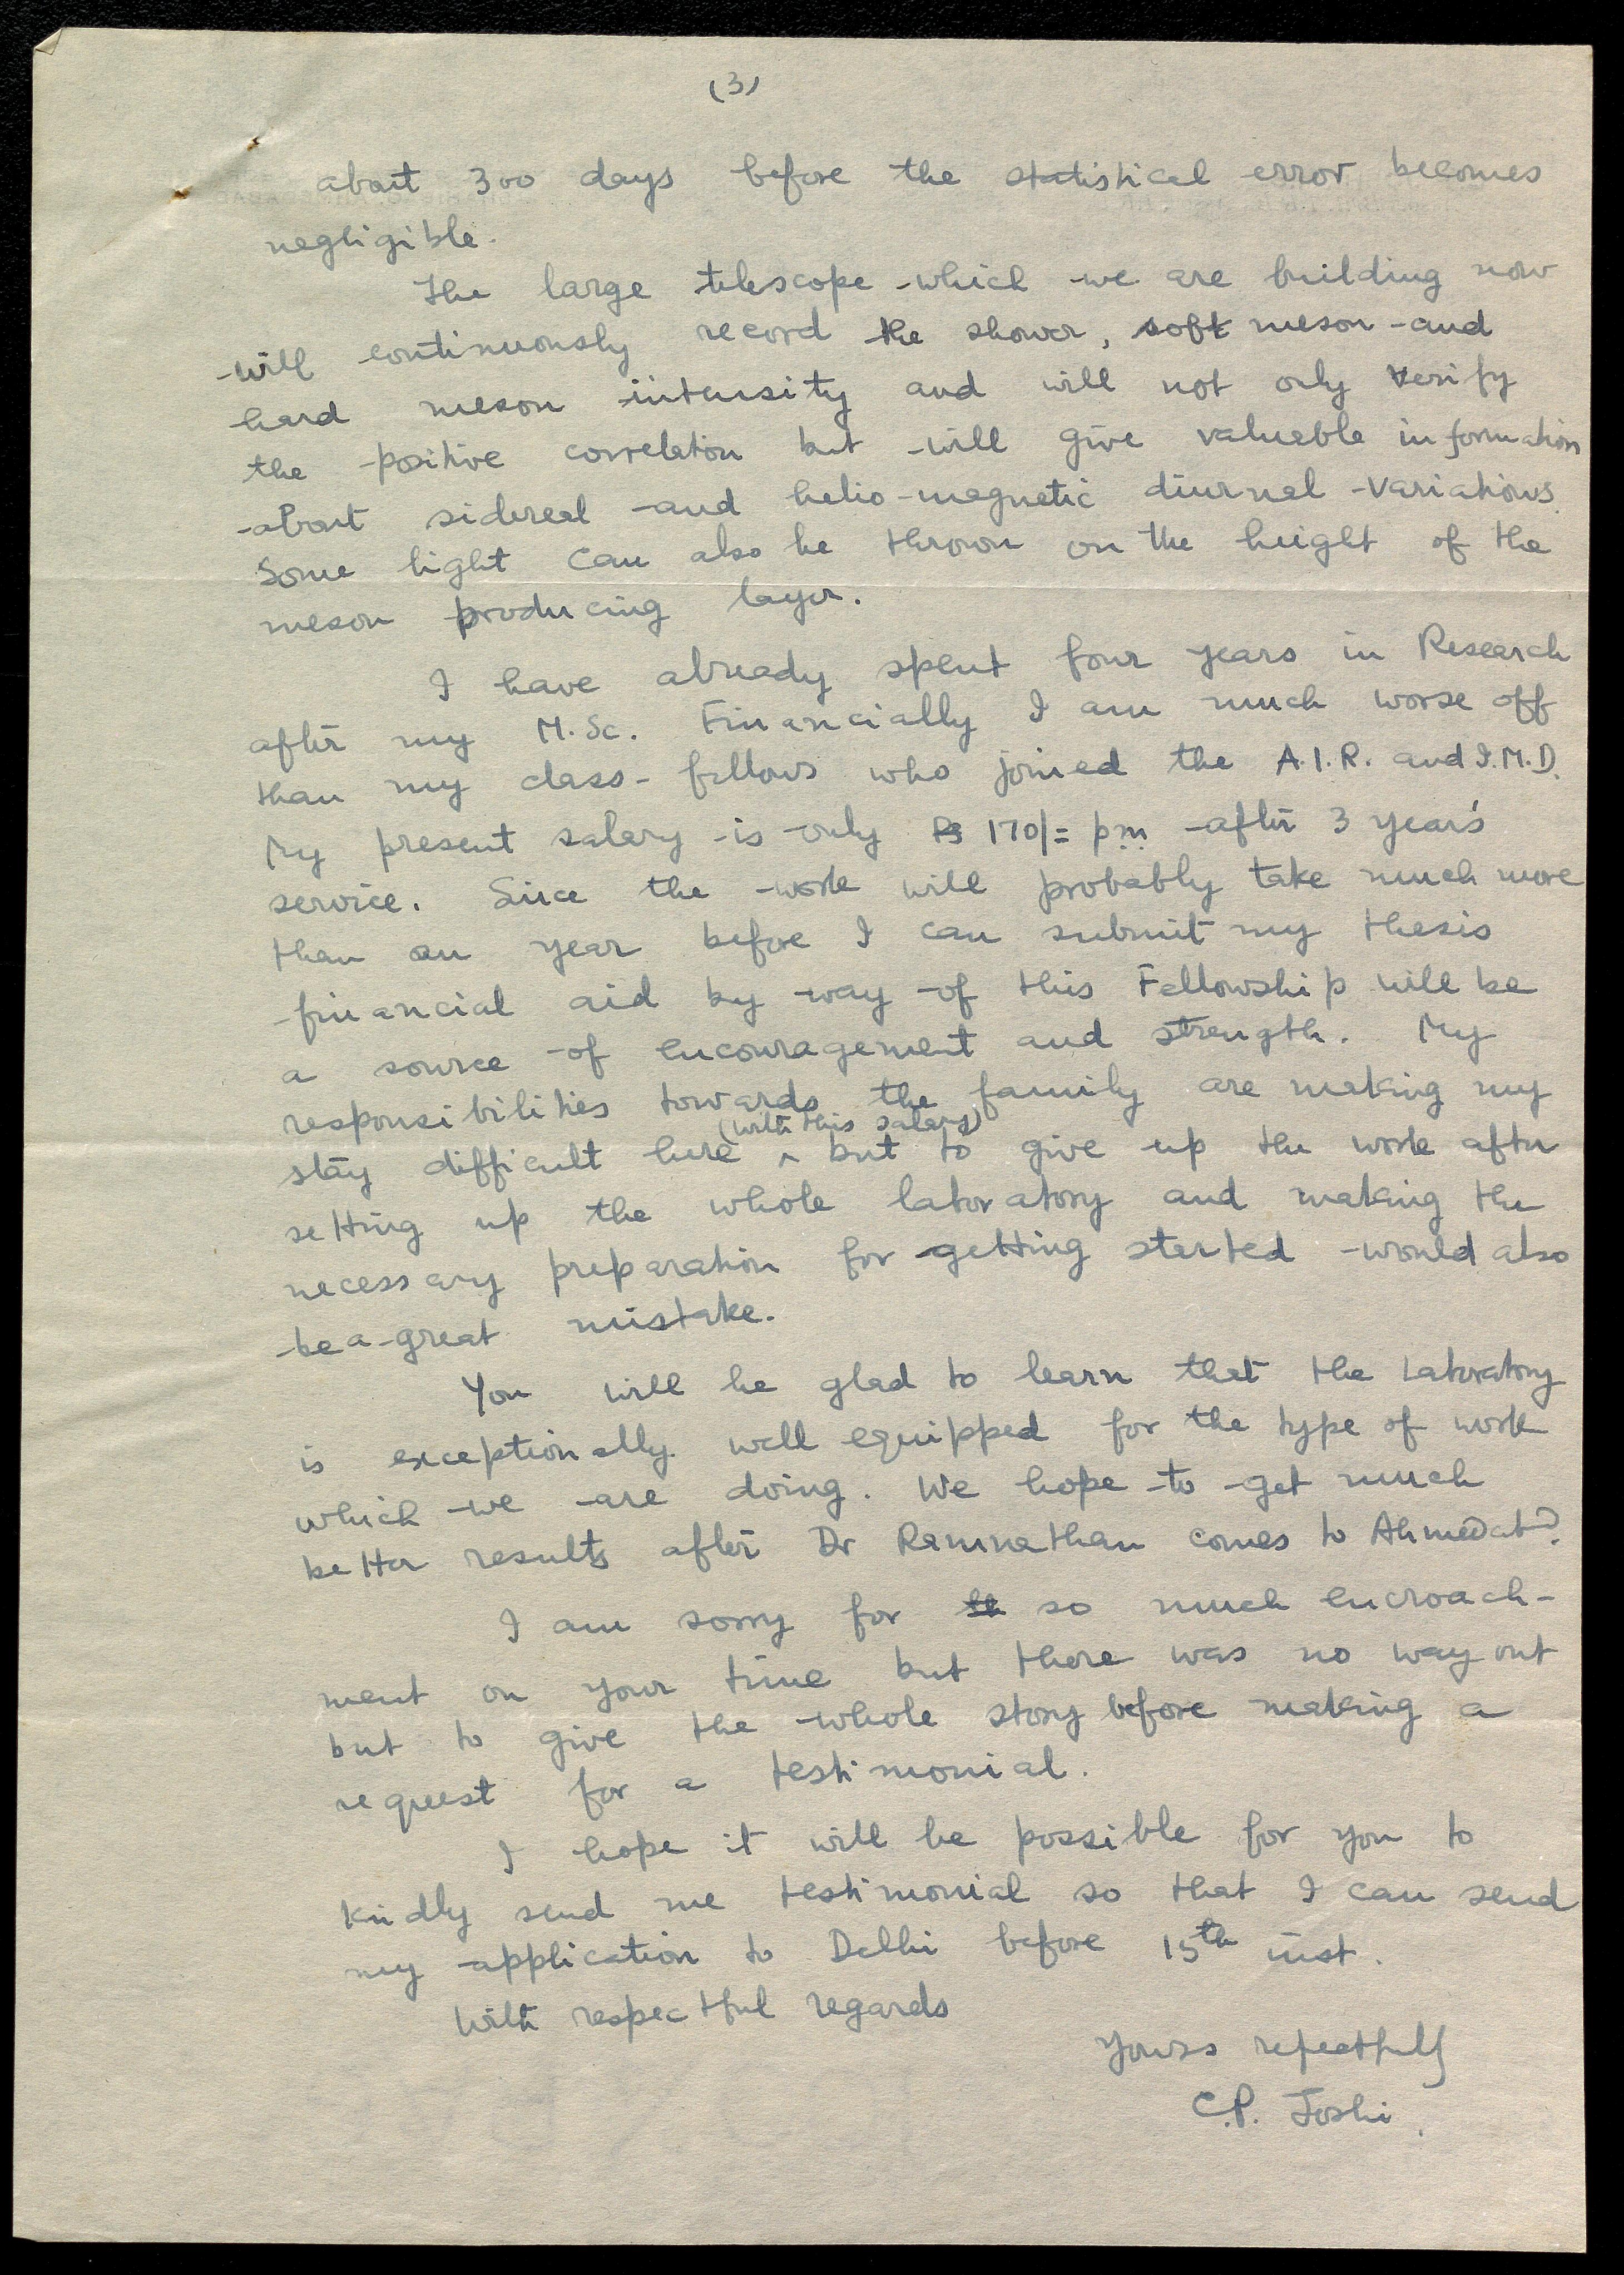 (3)
about 300 days before the statistical error becomes
negligible.
The large telescope which we are building now
will continuously record the shower, soft meson and
hard meson intensity and will not only verify
the positive correlation but will give valuable information
about sidereal and helio-magnetic diurnal variations.
Some light can also be thrown on the height of the
meson producing layer.
I have already spent four years in Research
after my M.Sc. Financially I am much worse off
than my class-fellows who joined the A.I.R. and I.M.D.
My present salary is only Rs 170/= p.m. after 3 year's
service. Since the work will probably take much more
than an year before I can submit my thesis
financial aid by way of this Fellowship will be
a source of encouragement and strength. My
responsibilities towards the family are making my
(with this salary)
stay difficult here ^ but to give up the work after
setting up the whole laboratory and making the
necessary preparation for getting started would also
be a great mistake.
You will be glad to learn that the Laboratory
is exceptionally well equipped for the type of work
which we are doing. We hope to get much
better results after Dr Ramnathan comes to Ahmedabad.
I am sorry for so much encroach-
ment on your time but there was no way out
but to give the whole story before making a
request for a testimonial.
I hope it will be possible for you to
kindly send me testimonial so that I can send
my application to Delhi before 15th inst.
With respectful regards
Yours repectfully
C.P. Joshi.